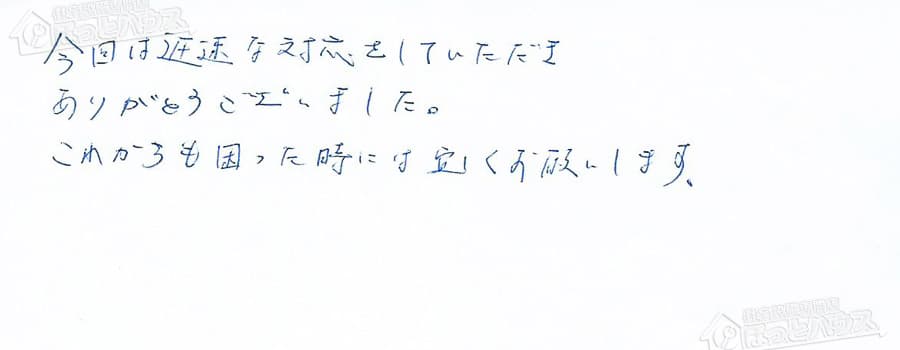 今回は迅速な対応をしていただき
ありがとうございました。
これからも困った時には宜しくお願いします。
ほっとハウス
ほっとハウス